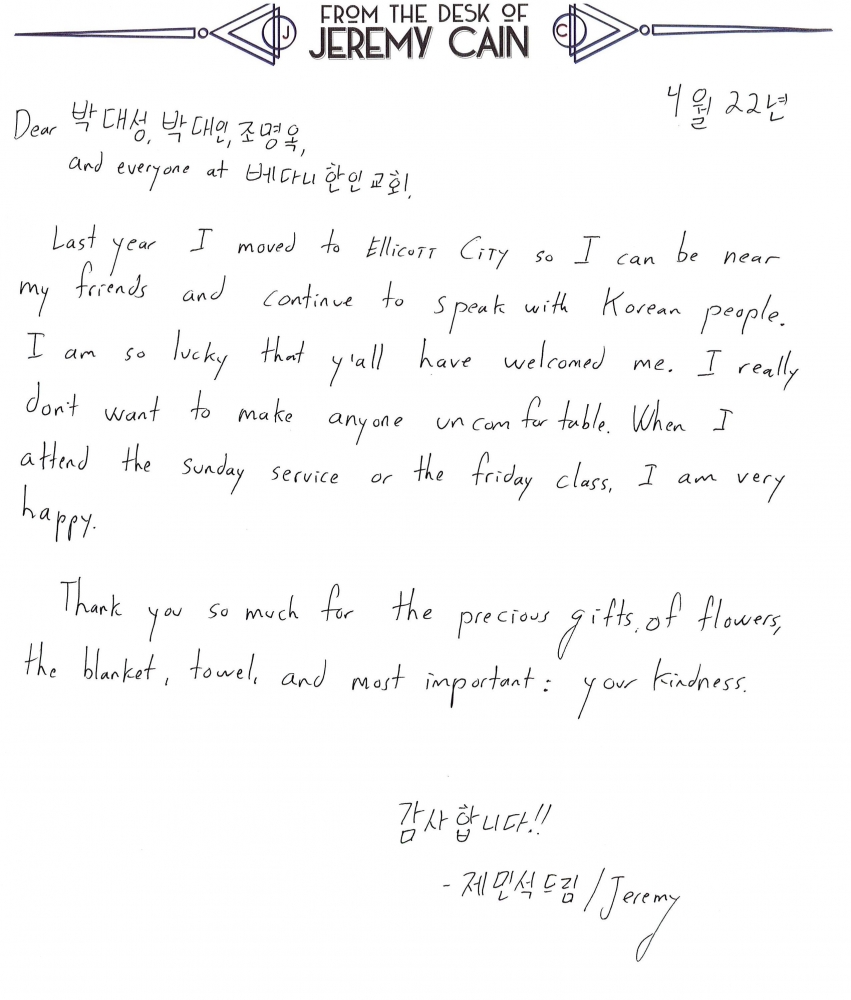 FROM THE DESK OF
J JEREMY CAIN C
4월 22년
Dear 박대성, 박대인, 조명옥,
and everyone at 베다니 한인 교회!
Last year I moved to Ellicott City so I can be near
my friends and continue to speak with Korean people.
I am so lucky that y'all have welcomed me. I really
don't want to make anyone uncomfortable. When I
attend the Sunday service or the friday class, I am very
happy.
Thank you so much for the precious gifts, of flowers,
the blanket, towel, and most important: your kindness.
감사합니다!!
- 제민석 드림 / Jeremy